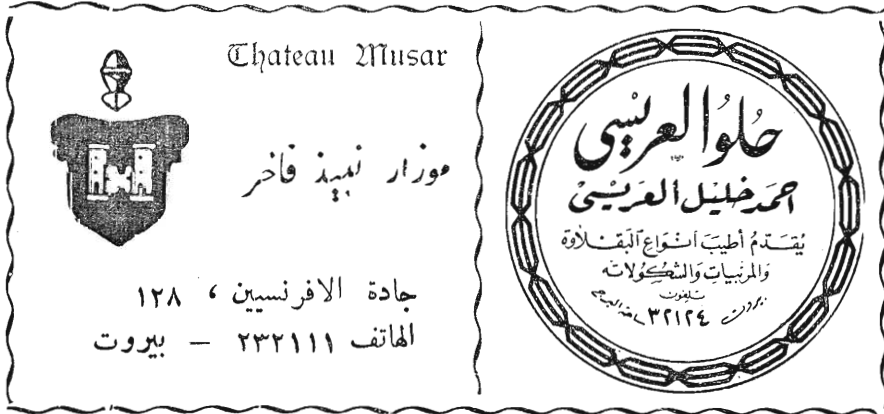 Chateau Musar
موزار نبيذ فاخر
جادة الافرنسيين ، ١٢٨
الهاتف ٢٣٢١١١ – بيروت
حلو العريسي
احمد خليل العريسي
يقدم أطيب انواع البقلاوة
والمربيات والشكولاته
تلفون
بيروت ٣٢١٢٤